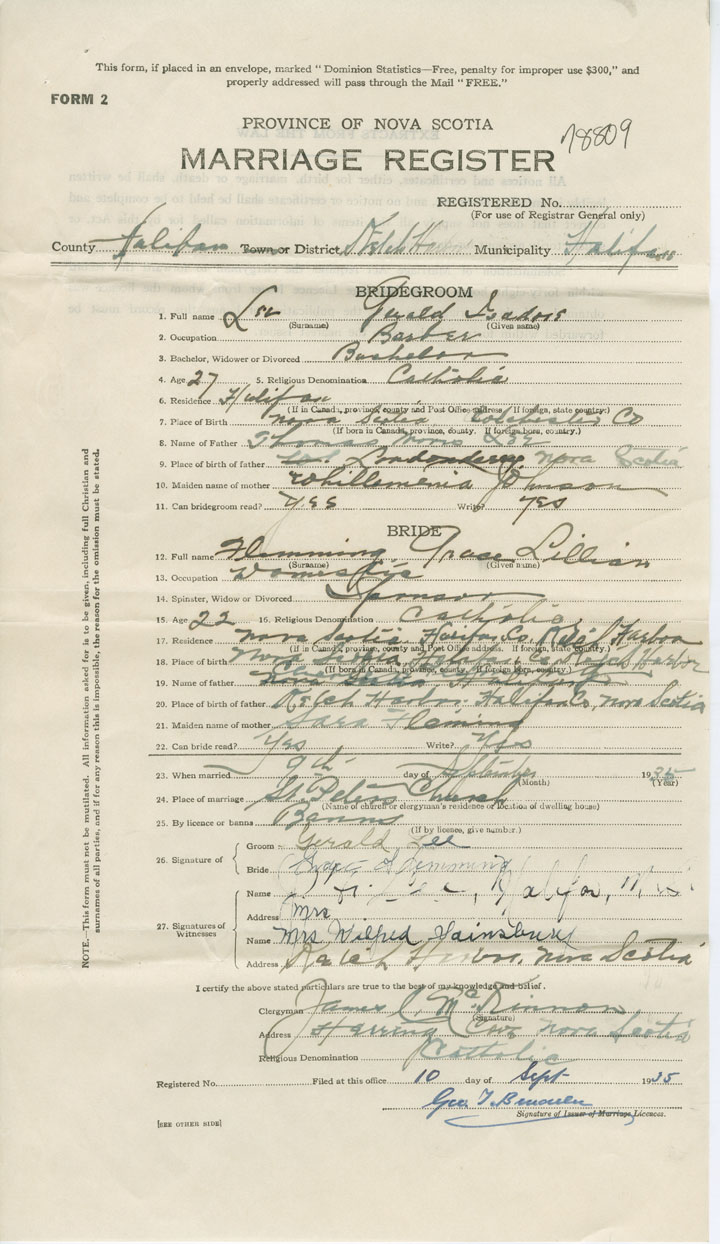 This form, if placed in an envelope, marked "Dominion Statistics—Free, penalty for improper use $300," and
properly addressed will pass through the Mail "FREE."
FORM 2
PROVINCE OF NOVA SCOTIA
MARRIAGE REGISTER
78809
REGISTERED No.
(For use of Registrar General only)
County Halifax Town or District Ketch Harbor Municipality Halifax
BRIDEGROOM
1. Full name Lee Gerald Isadore
(Surname) (Given name)
2. Occupation Barber
3. Bachelor, Widower or Divorced Bachelor
4. Age 27 5. Religious Denomination Catholic
6. Residence Halifax
(If in Canada, province, county and Post Office address. If foreign, state country.)
7. Place of Birth Nova Scotia Colchester Co
(If born in Canada, province, county. If foreign born, country.)
8. Name of Father Thomas Lee
9. Place of birth of father Londonderry Nova Scotia
10. Maiden name of mother Whillemenia Johnson
11. Can bridegroom read? Yes Write? Yes
BRIDE
12. Full name Flemming Grace Lillian
(Surname) (Given name)
13. Occupation Domestic
14. Spinster, Widow or Divorced
15. Age 22 16. Religious Denomination Catholic
17. Residence Nova Scotia Halifax Co. Harbor
(If in Canada, province, county and Post Office address. If foreign, state country.)
18. Place of birth Nova Scotia Halifax Co Ketch Harbor
(If born in Canada, province, county. If foreign born, country.)
19. Name of father
20. Place of birth of father Ketch Harbor Halifax Co, Nova Scotia
21. Maiden name of mother Sara Fleming
22. Can bride read? Yes Write? Yes
23. When married 9th day of September 1935
(Month) (Year)
24. Place of marriage St. Peters Church
(Name of church or clergyman's residence or location of dwelling house)
25. By licence or banns Banns
(If by licence, give number.)
26. Signature of Groom Gerald Lee
Bride Grace Flemming
27. Signatures of Witnesses
Name Halifax,
Address Mrs
Name Mrs Wilfred Sainsbury
Address Harbor, Nova Scotia
I certify the above stated particulars are true to the best of my knowledge and belief.
Clergyman James C. McKinnon
(Signature)
Address Herring Cove Nova Scotia
Religious Denomination Catholic
Registered No. Filed at this office 10 day of Sept 1935
Geo T.
Signature of Issuer of Marriage Licences.
[SEE OTHER SIDE]
NOTE.—This form must not be mutilated. All information asked for is to be given, including full Christian and
surnames of all parties, and if for any reason this is impossible, the reason for the omission must be stated.